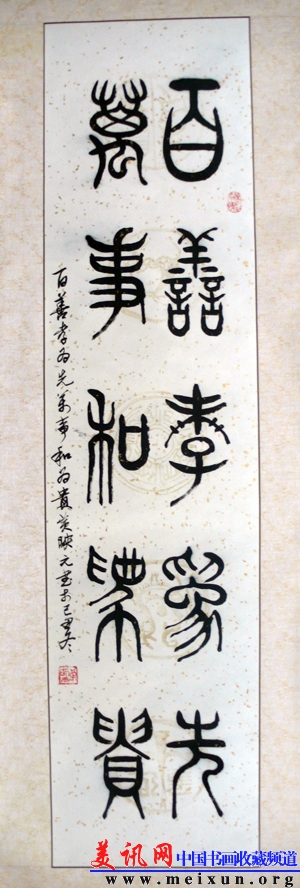 百善孝為先
萬事和為貴
百善孝为先萬事和为貴映元书于己丑冬
美讯网 中国书画收藏频道
www.meixun.org